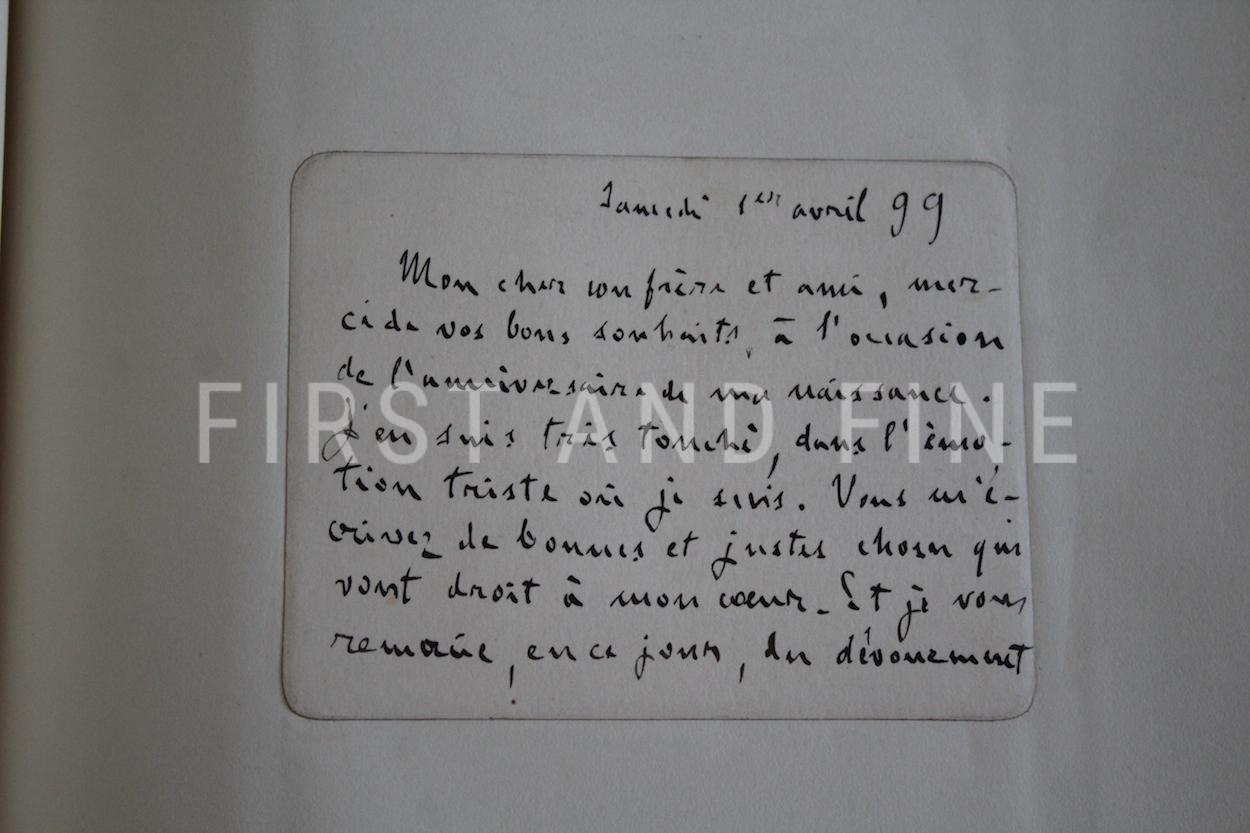 Samedi 1er avril 99
Mon cher confrère et ami, mer-
ci de vos bons souhaits, à l'occasion
de l'anniversaire de ma naissance.
FIRST AND FINE
J'en suis très touché, dans l'émo-
tion triste où je suis. Vous m'é-
crivez de bonnes et justes choses qui
vont droit à mon cœur. Et je vous
remercie, en ce jour, du dévouement